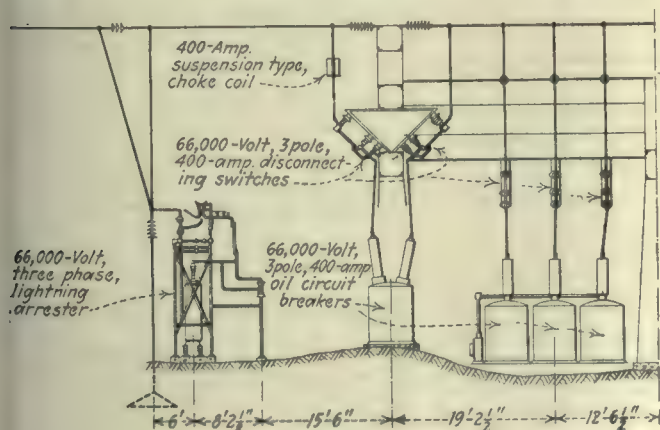 400-Amp.
suspension type,
choke coil
66,000-Volt, 3pole,
400-amp. disconnect-
ing switches
66,000-Volt,
three phase,
lightning
arrester
66,000-Volt,
3pole, 400-amp
oil circuit
breakers
6' 8'-2½" 15'6" 19'-2½" 12'-6½"